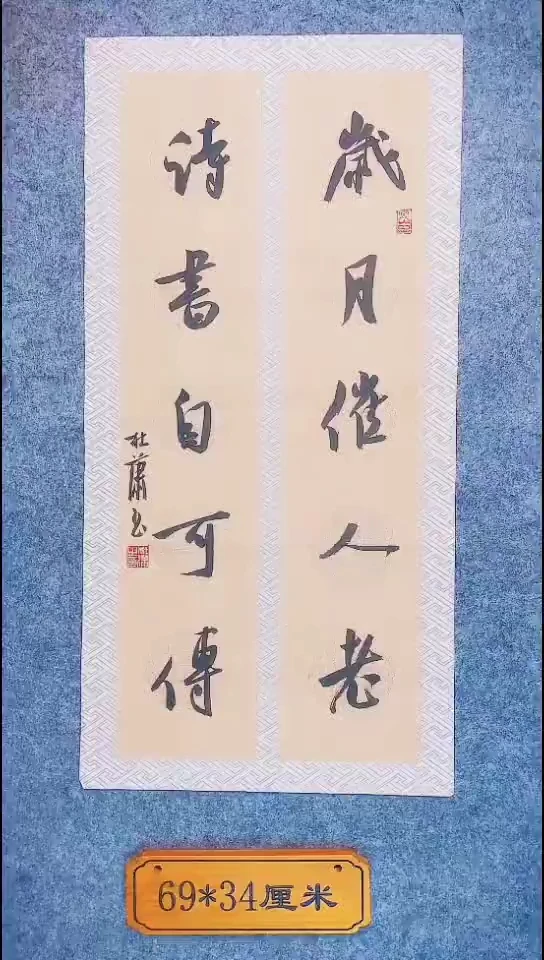 歲月催人老
詩書自可傳
杜蕭書
69*34厘米